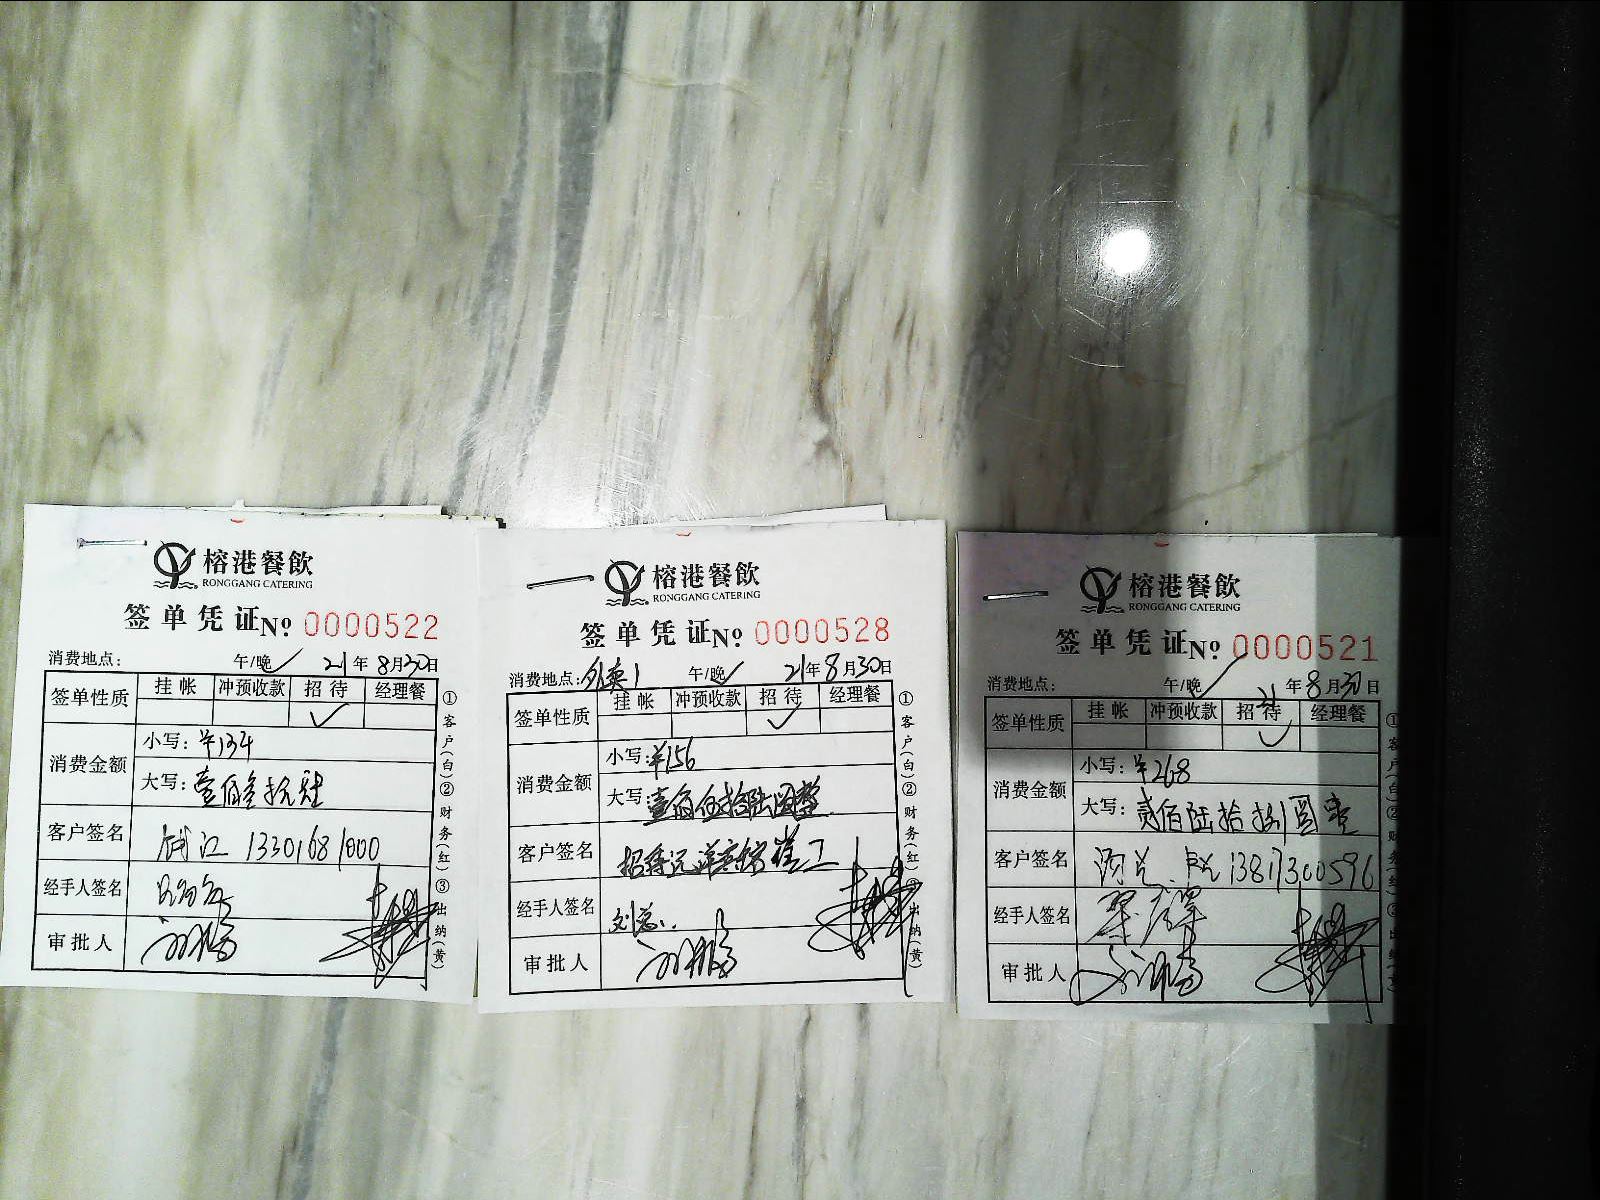 榕港餐飲
RONGGANG CATERING
签单凭证№ 0000522
消费地点: 午/晚✓ 21年8月30日
签单性质 挂帐 冲预收款 招待 经理餐
✓
消费金额 小写:¥134
大写:壹佰叁拾
客户签名 13301681000
经手人签名
审批人
①客户(白)②财务(红)③出纳(黄)
榕港餐飲
RONGGANG CATERING
签单凭证№ 0000528
消费地点:外卖1 午/晚✓ 21年8月30日
签单性质 挂帐 冲预收款 招待 经理餐
✓
消费金额 小写:¥156
大写:壹佰伍拾陆圆整
客户签名 招待远洋宾馆
经手人签名 刘
审批人
①客户(白)②财务(红)③出纳(黄)
榕港餐飲
RONGGANG CATERING
签单凭证№ 0000521
消费地点: 午/晚✓ 21年8月30日
签单性质 挂帐 冲预收款 招待 经理餐
✓
消费金额 小写:¥268
大写:贰佰陆拾捌圆整
客户签名 13817300596
经手人签名
审批人